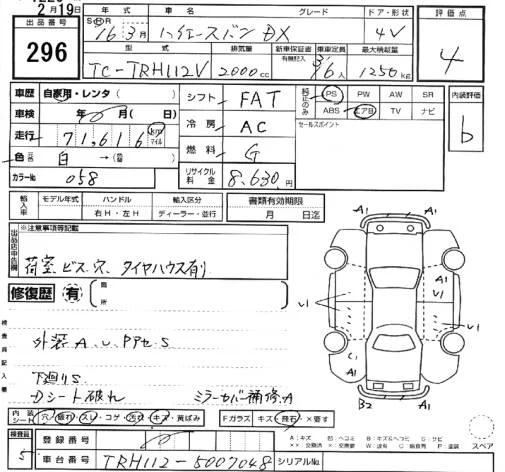 2月19日
年式 車名 グレード ドア・形状 評価点
出品番号 S H R 16年3月 ハイエースバン DX 4V 4
296
型式 排気量 新車保証書 有無記入 乗車定員 最大積載量
TC-TRH112V 2000cc 3/6人 1250kg
車歴 自家用・レンタ( ) シフト FAT 純正のみ PS PW AW SR 内装評価
車検 年 月( ) ABS エアB TV ナビ b
冷房 AC セールスポイント
走行 71,616 km マイル
燃料 G
色 白
カラーNo 058 リサイクル料金 8,630円
輸入車 モデル年式 ハンドル 輸入区分 書類有効期限
右H・左H ディーラー・並行 月 日迄
出品店申告欄 ※注意事項等記載 A1 A1
荷室ビス穴、タイヤハウス有り
A1
修復歴 有 箇所 U1 U1
検査員記入欄
外装A、U、Pアセ、S
下廻りS
Dシート破れ ミラーカバー補修、A B2 A1
内装 シート 穴・破れ・スレ・コゲ・汚れ・キズ・黄ばみ Fガラス キズ・飛石・×要す
スペア
A:キズ B:キズ&ヘコミ S:サビ
××:交換済 ×:要交換 P:塗装
検査証 5 登録番号
車台番号 TRH112-5007048 シリアルNo.